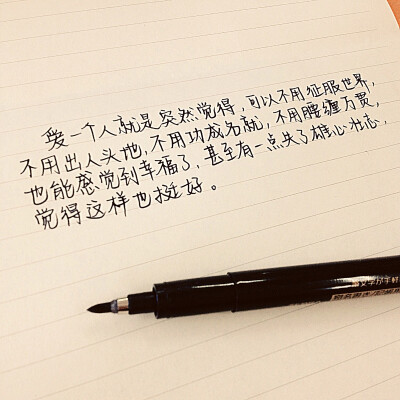 爱一个人就是突然觉得，可以不用征服世界，
不用出人头地，不用功成名就，不用腰缠万贯，
也能感觉到幸福了，甚至有一点失了雄心壮志，
觉得这样也挺好。